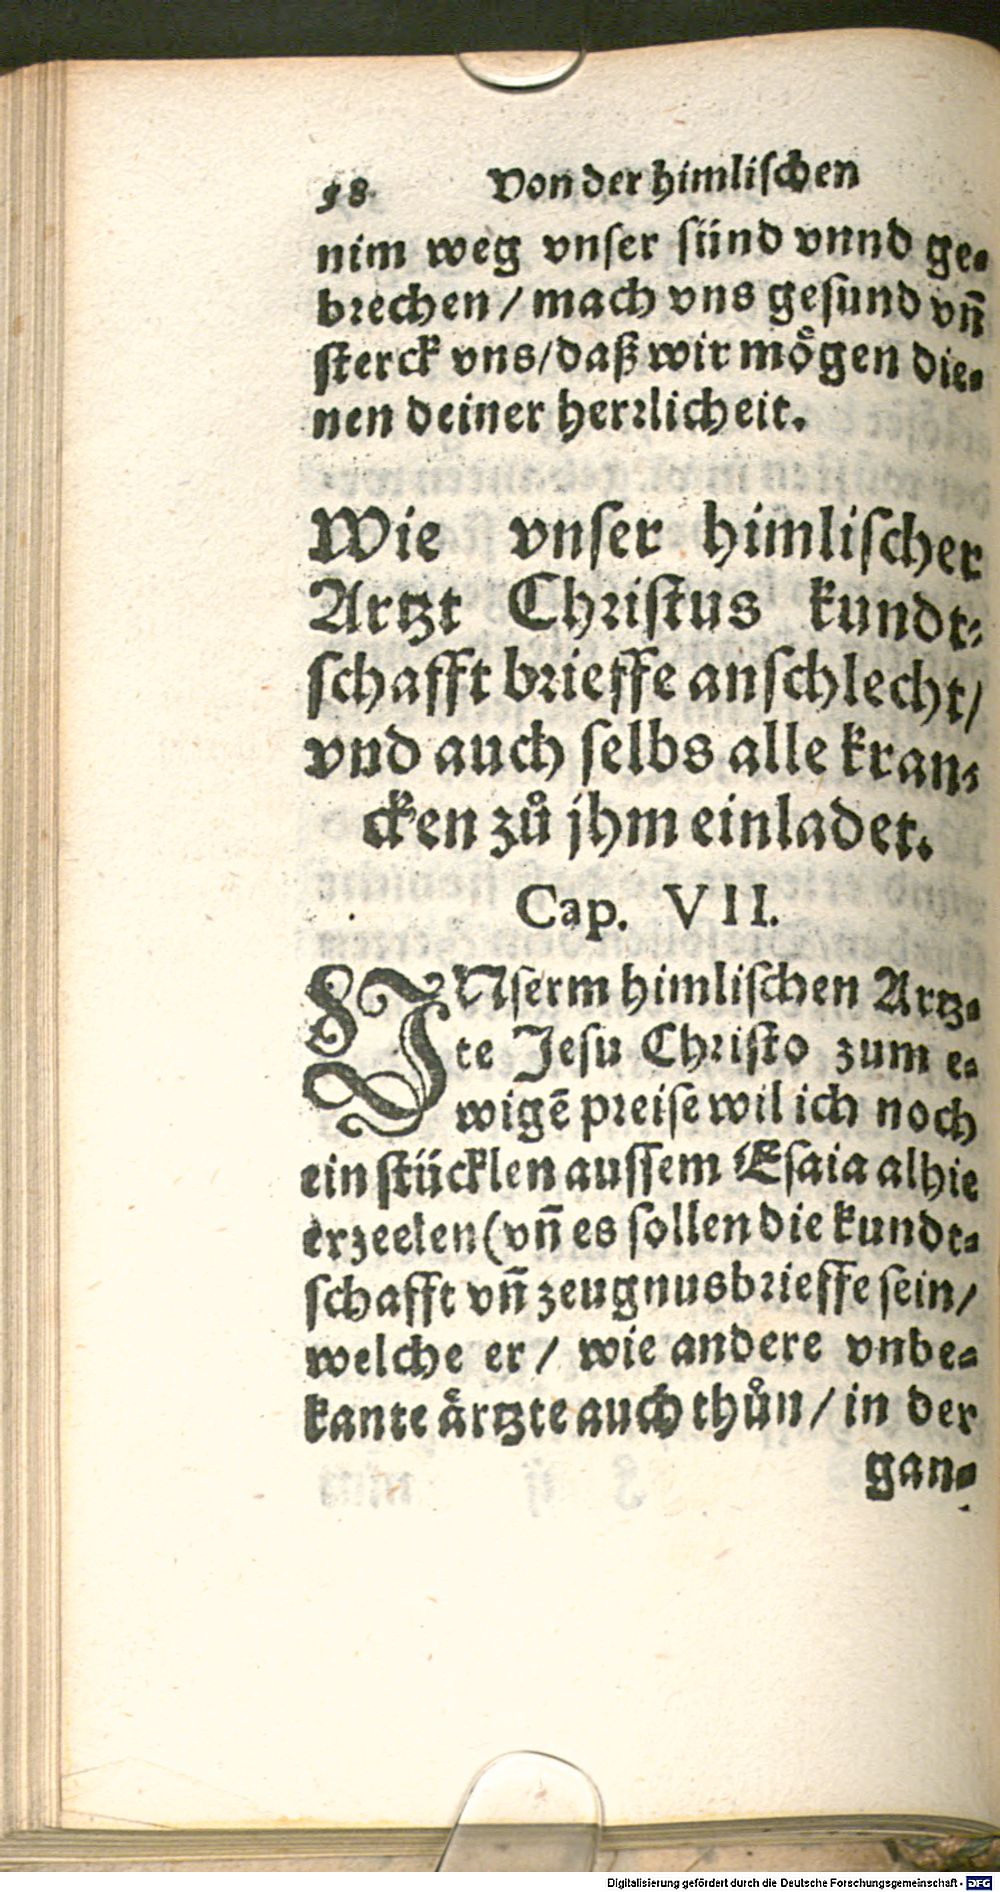 58 Von der himlischen
nim weg vnser sünd vnnd ge-
brechen / mach vns gesund vn̄
sterck vns / daß wir moͤgen die-
nen deiner herrlicheit.
Wie vnser himlischer
Artzt Christus kundt-
schafft brieffe anschlecht /
vnd auch selbs alle kran-
cken zuͦ jhm einladet.
Cap. VII.
VNserm himlischen Artz-
te Jesu Christo zum e-
wigē preise wil ich noch
ein stücklen aussem Esaia alhie
erzeelen (vn̄ es sollen die kundt-
schafft vn̄ zeugnusbrieffe sein /
welche er / wie andere vnbe-
kante aͤrtzte auch thuͦn / in der
gan-
Digitalisierung gefördert durch die Deutsche Forschungsgemeinschaft - DFG